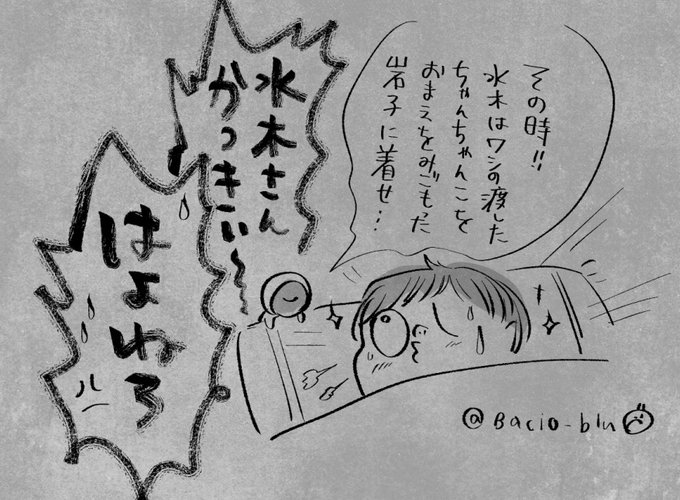 その時!!
水木はワシの渡した
ちゃんちゃんこを
おまえをみごもった
岩子に着せ…
水木さん
かっきい〜〜
はよねろ
@Bacio-blu